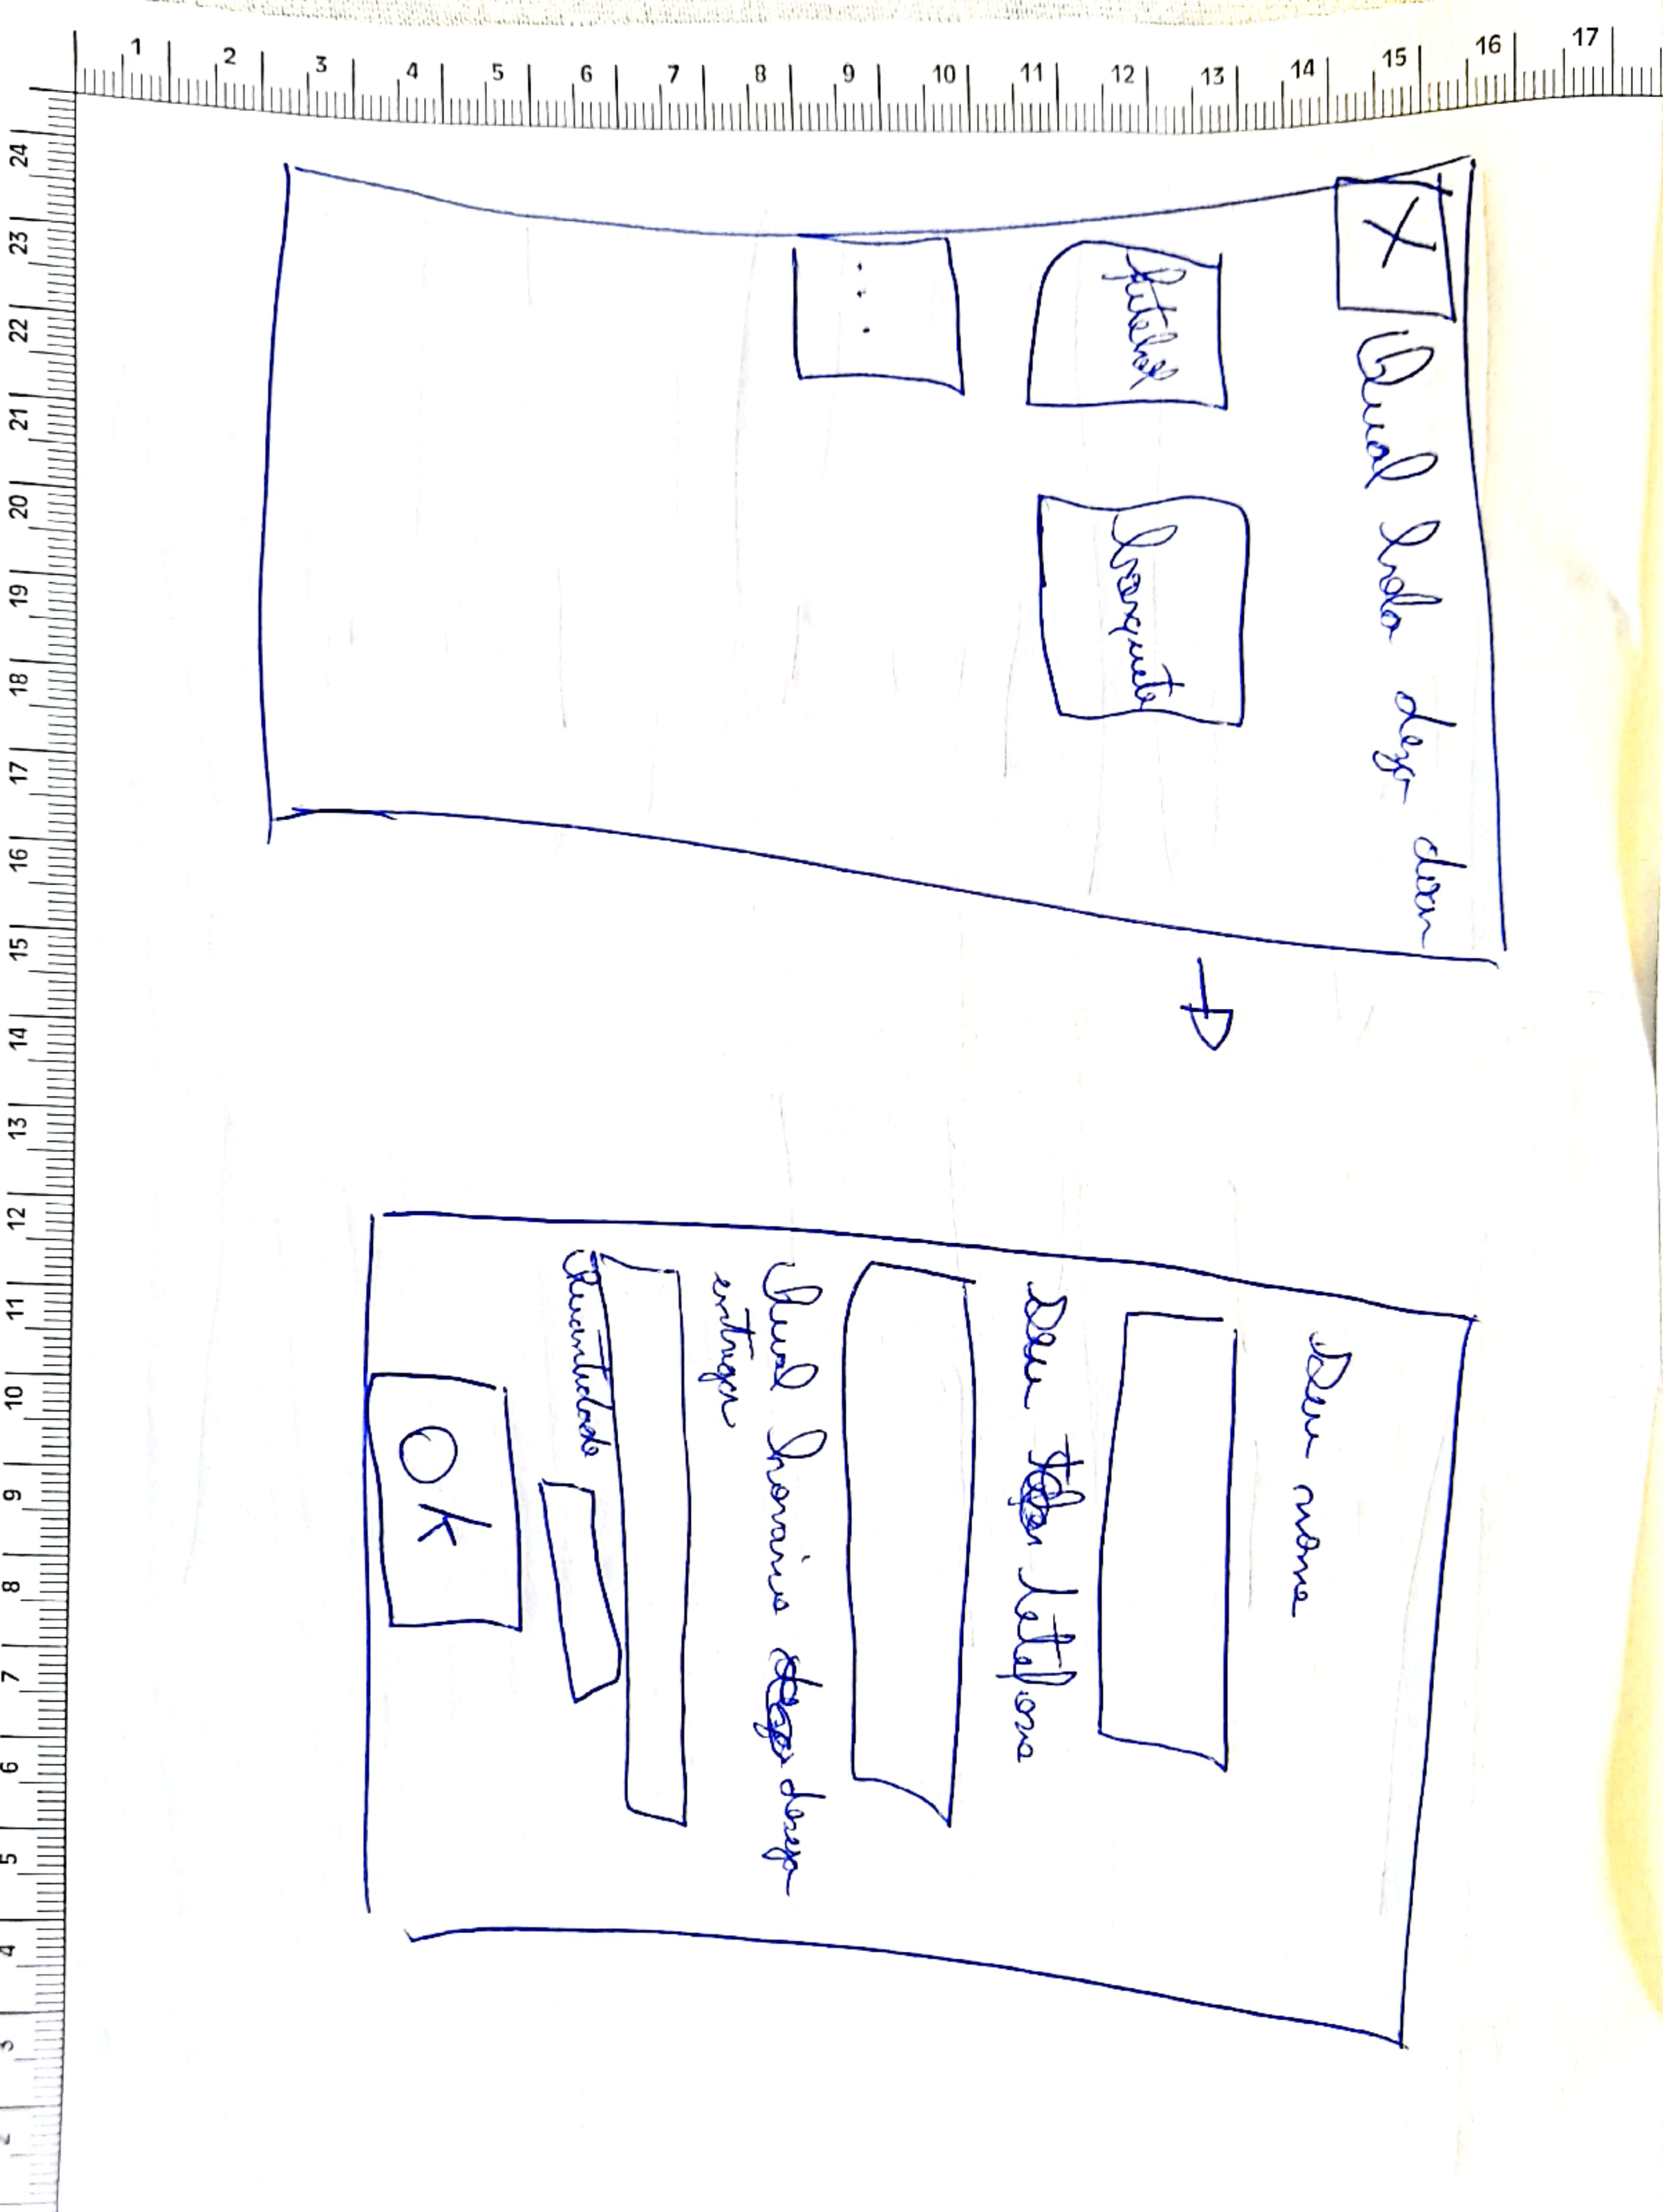 1 2 3 4 5 6 7 8 9 10 11 12 13 14 15 16 17
24 23 22 21 20 19 18 17 16 15 14 13 12 11 10 9 8 7 6 5 4 3 2
X Qual bola deseja doar
futebol basquete
...
Seu nome
Seu telefone
Qual horário deseja
entregar
Quantidade
OK